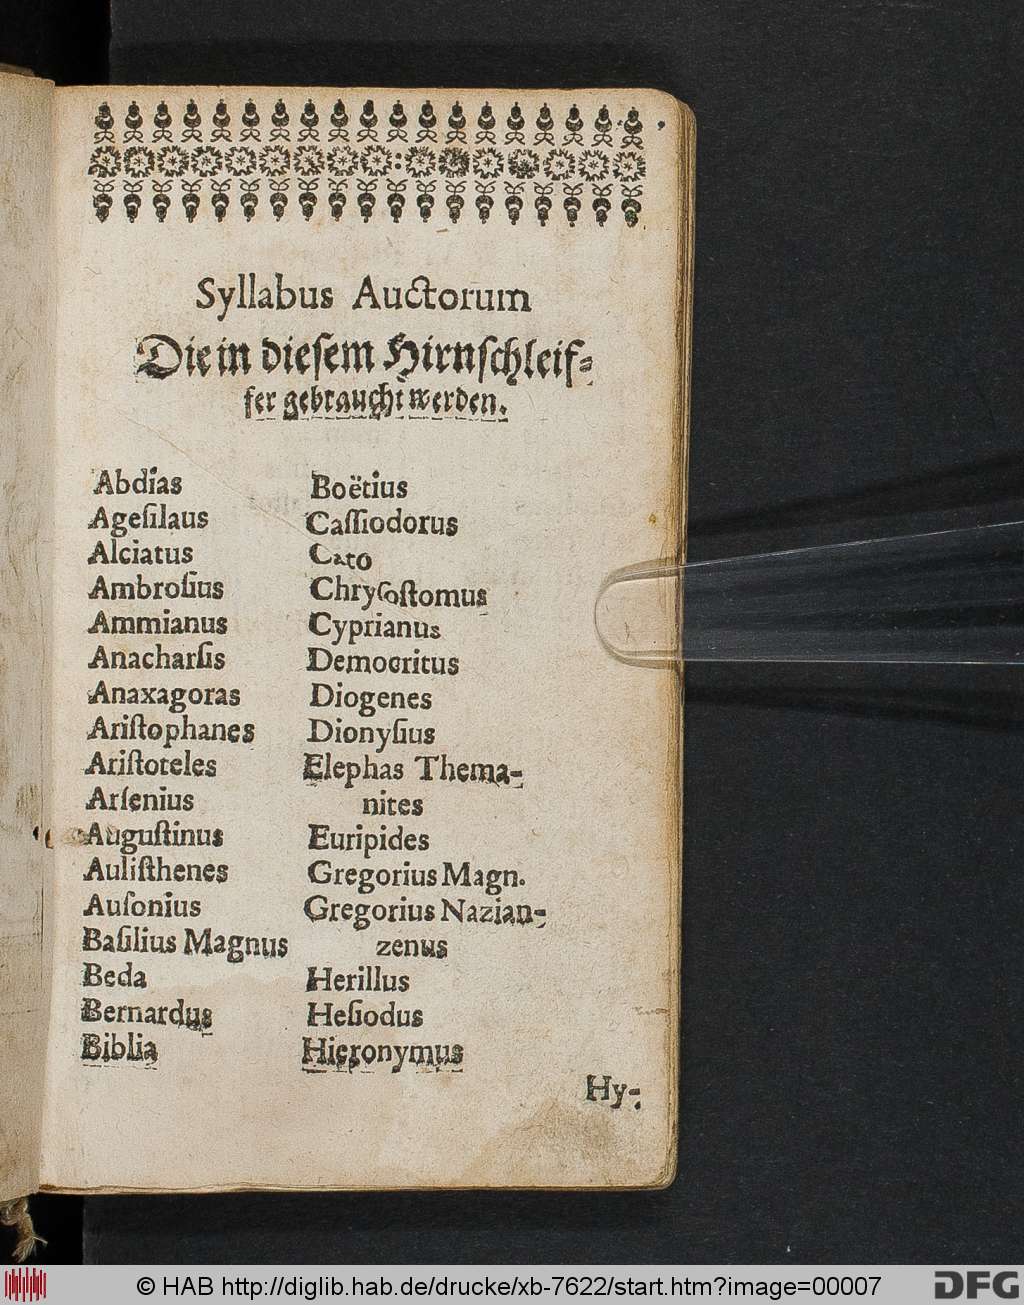 Syllabus Auctorum
Die in dieſem Hirnſchleif-
fer gebraucht werden.
Abdias
Ageſilaus
Alciatus
Ambroſius
Ammianus
Anacharſis
Anaxagoras
Ariſtophanes
Ariſtoteles
Arſenius
Auguſtinus
Auliſthenes
Auſonius
Baſilius Magnus
Beda
Bernardus
Biblia
Boëtius
Caſſiodorus
Cato
Chryſoſtomus
Cyprianus
Democritus
Diogenes
Dionyſius
Elephas Thema-
nites
Euripides
Gregorius Magn.
Gregorius Nazian-
zenus
Herillus
Heſiodus
Hieronymus
Hy-
© HAB http://diglib.hab.de/drucke/xb-7622/start.htm?image=00007
DFG